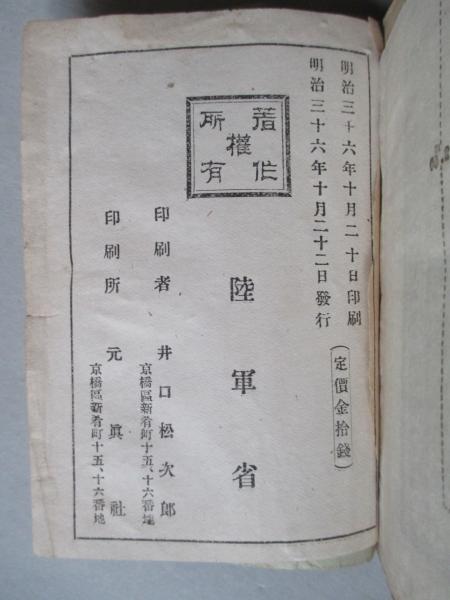 明治三十六年十月二十日印刷
明治三十六年十月二十二日發行
(定價金拾錢)
著作
權
所有
陸軍省
印刷者 井口松次郎
京橋區新肴町十五、十六番地
印刷所 元眞社
京橋區新肴町十五、十六番地